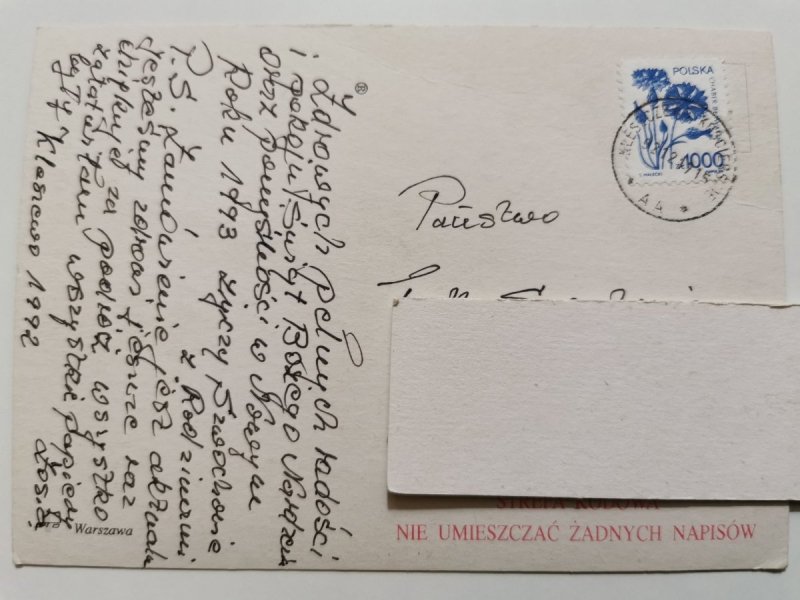 Zdrowych pełnych radości
i spokoju Świąt Bożego Narodzenia
oraz pomyślności w Nowym
Roku 1993 życzy
z Rodzinami
P.S. Zamówienie jest aktualne
jesteśmy zdrowi jeszcze raz
dziękuję za podróż wszystko
załatwiłam wszystkie papiery
były
Kleszewo 1992 Zosia
Warszawa
®
POLSKA
1000
A4
Państwo
STREFA KODOWA
NIE UMIESZCZAĆ ŻADNYCH NAPISÓW